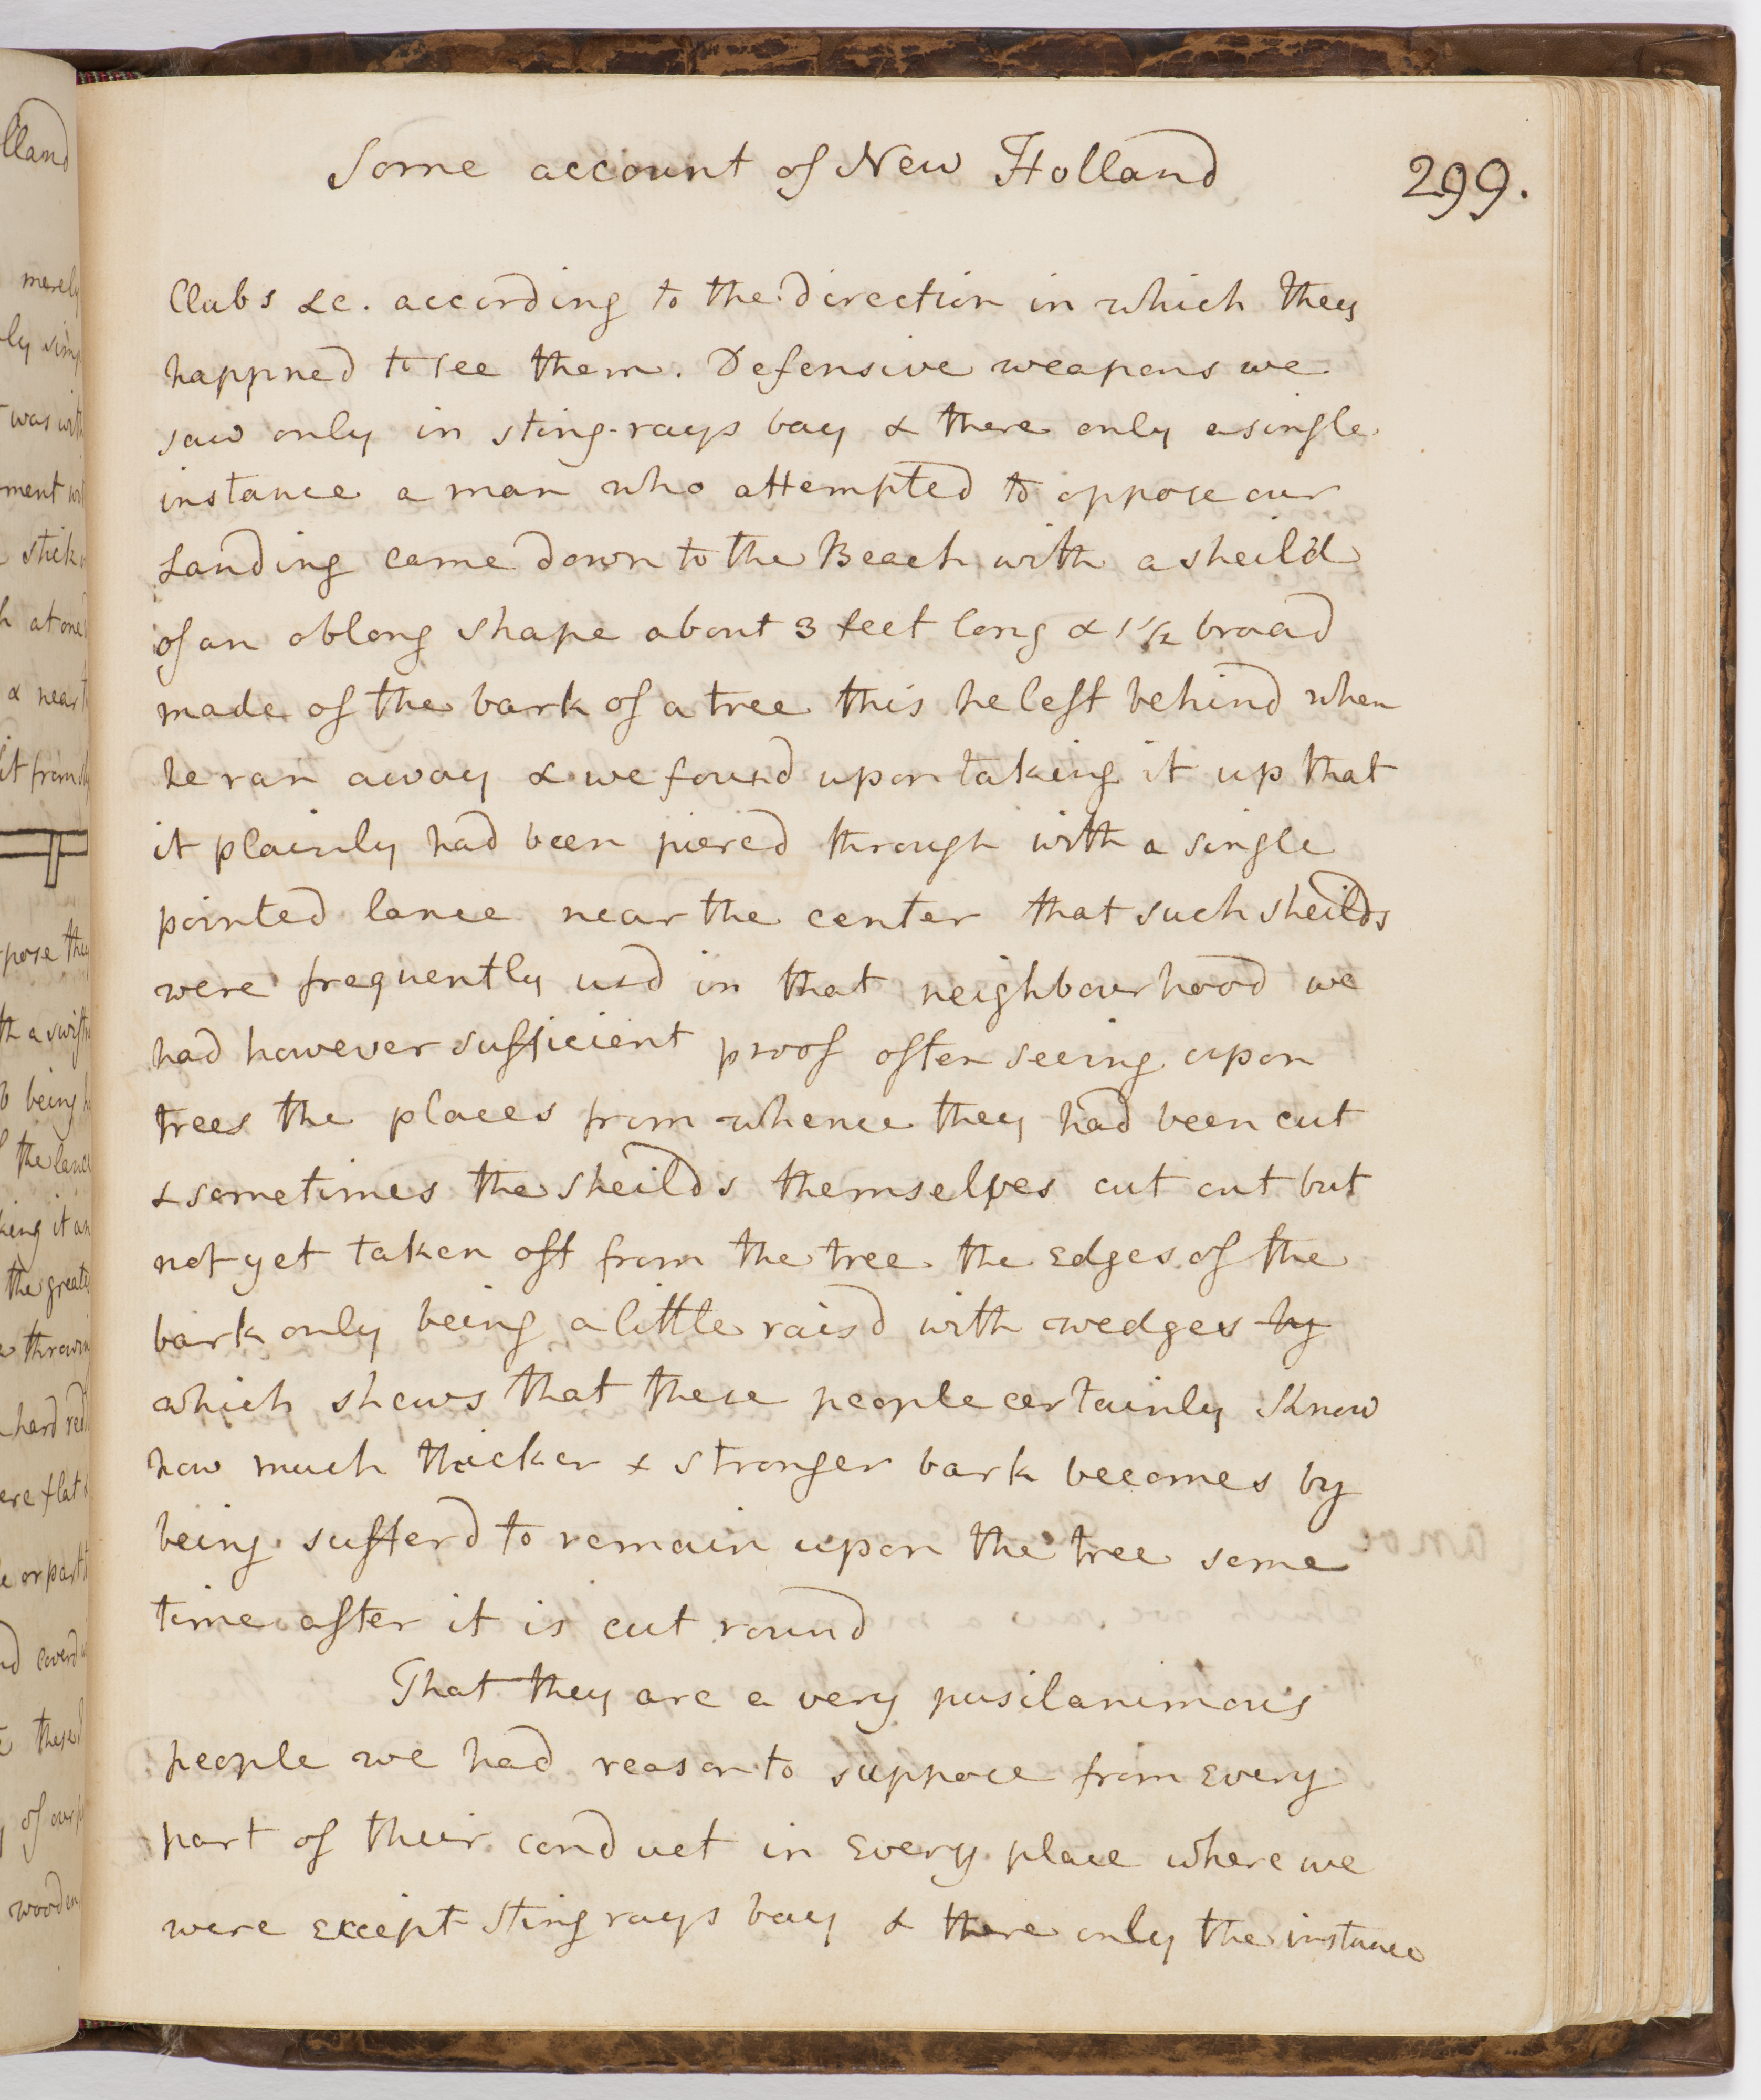 Some account of New Holland
299.
Clubs &c. according to the direction in which they
happned to see them. Defensive weapons we
saw only in sting-rays bay & there only a single
instance a man who attempted to oppose our
Landing came down to the Beach with a sheild
of an oblong shape about 3 feet long & 1 1/2 broad
made of the bark of a tree this he left behind when
he ran away & we found upon taking it up that
it plainly had been pierced through with a single
pointed lance near the center that such sheilds
were frequently usd in that neighbourhood we
had however sufficient proof often seeing upon
trees the places from whence they had been cut
& sometimes the sheilds themselves cut out but
not yet taken off from the tree the Edges of the
bark only being a little raisd with wedges by
which shews that these people certainly Know
how much thicker & stronger bark becomes by
being sufferd to remain upon the tree some
time after it is cut round
That they are a very pusilanimous
people we had reason to suppose from Every
part of their conduct in Every place where we
were Except Sting rays bay & there only the instance
lland
merely
ly
was with
ment
stick
at one
& near
it from
pose they
th a
being
the lance
king it
the
throwing
hard red
ere flat
or part
coverd
these
of our
wooden